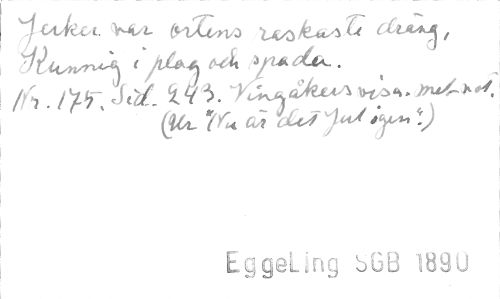 Jerker var ortens raskaste dräng,
Kunnig i plog och spada.
Nr. 175. Sid. 243. Vingåkersvisa. mel. not.
(Ur "Nu är det Jul igen".)
EggeLing SGB 1890